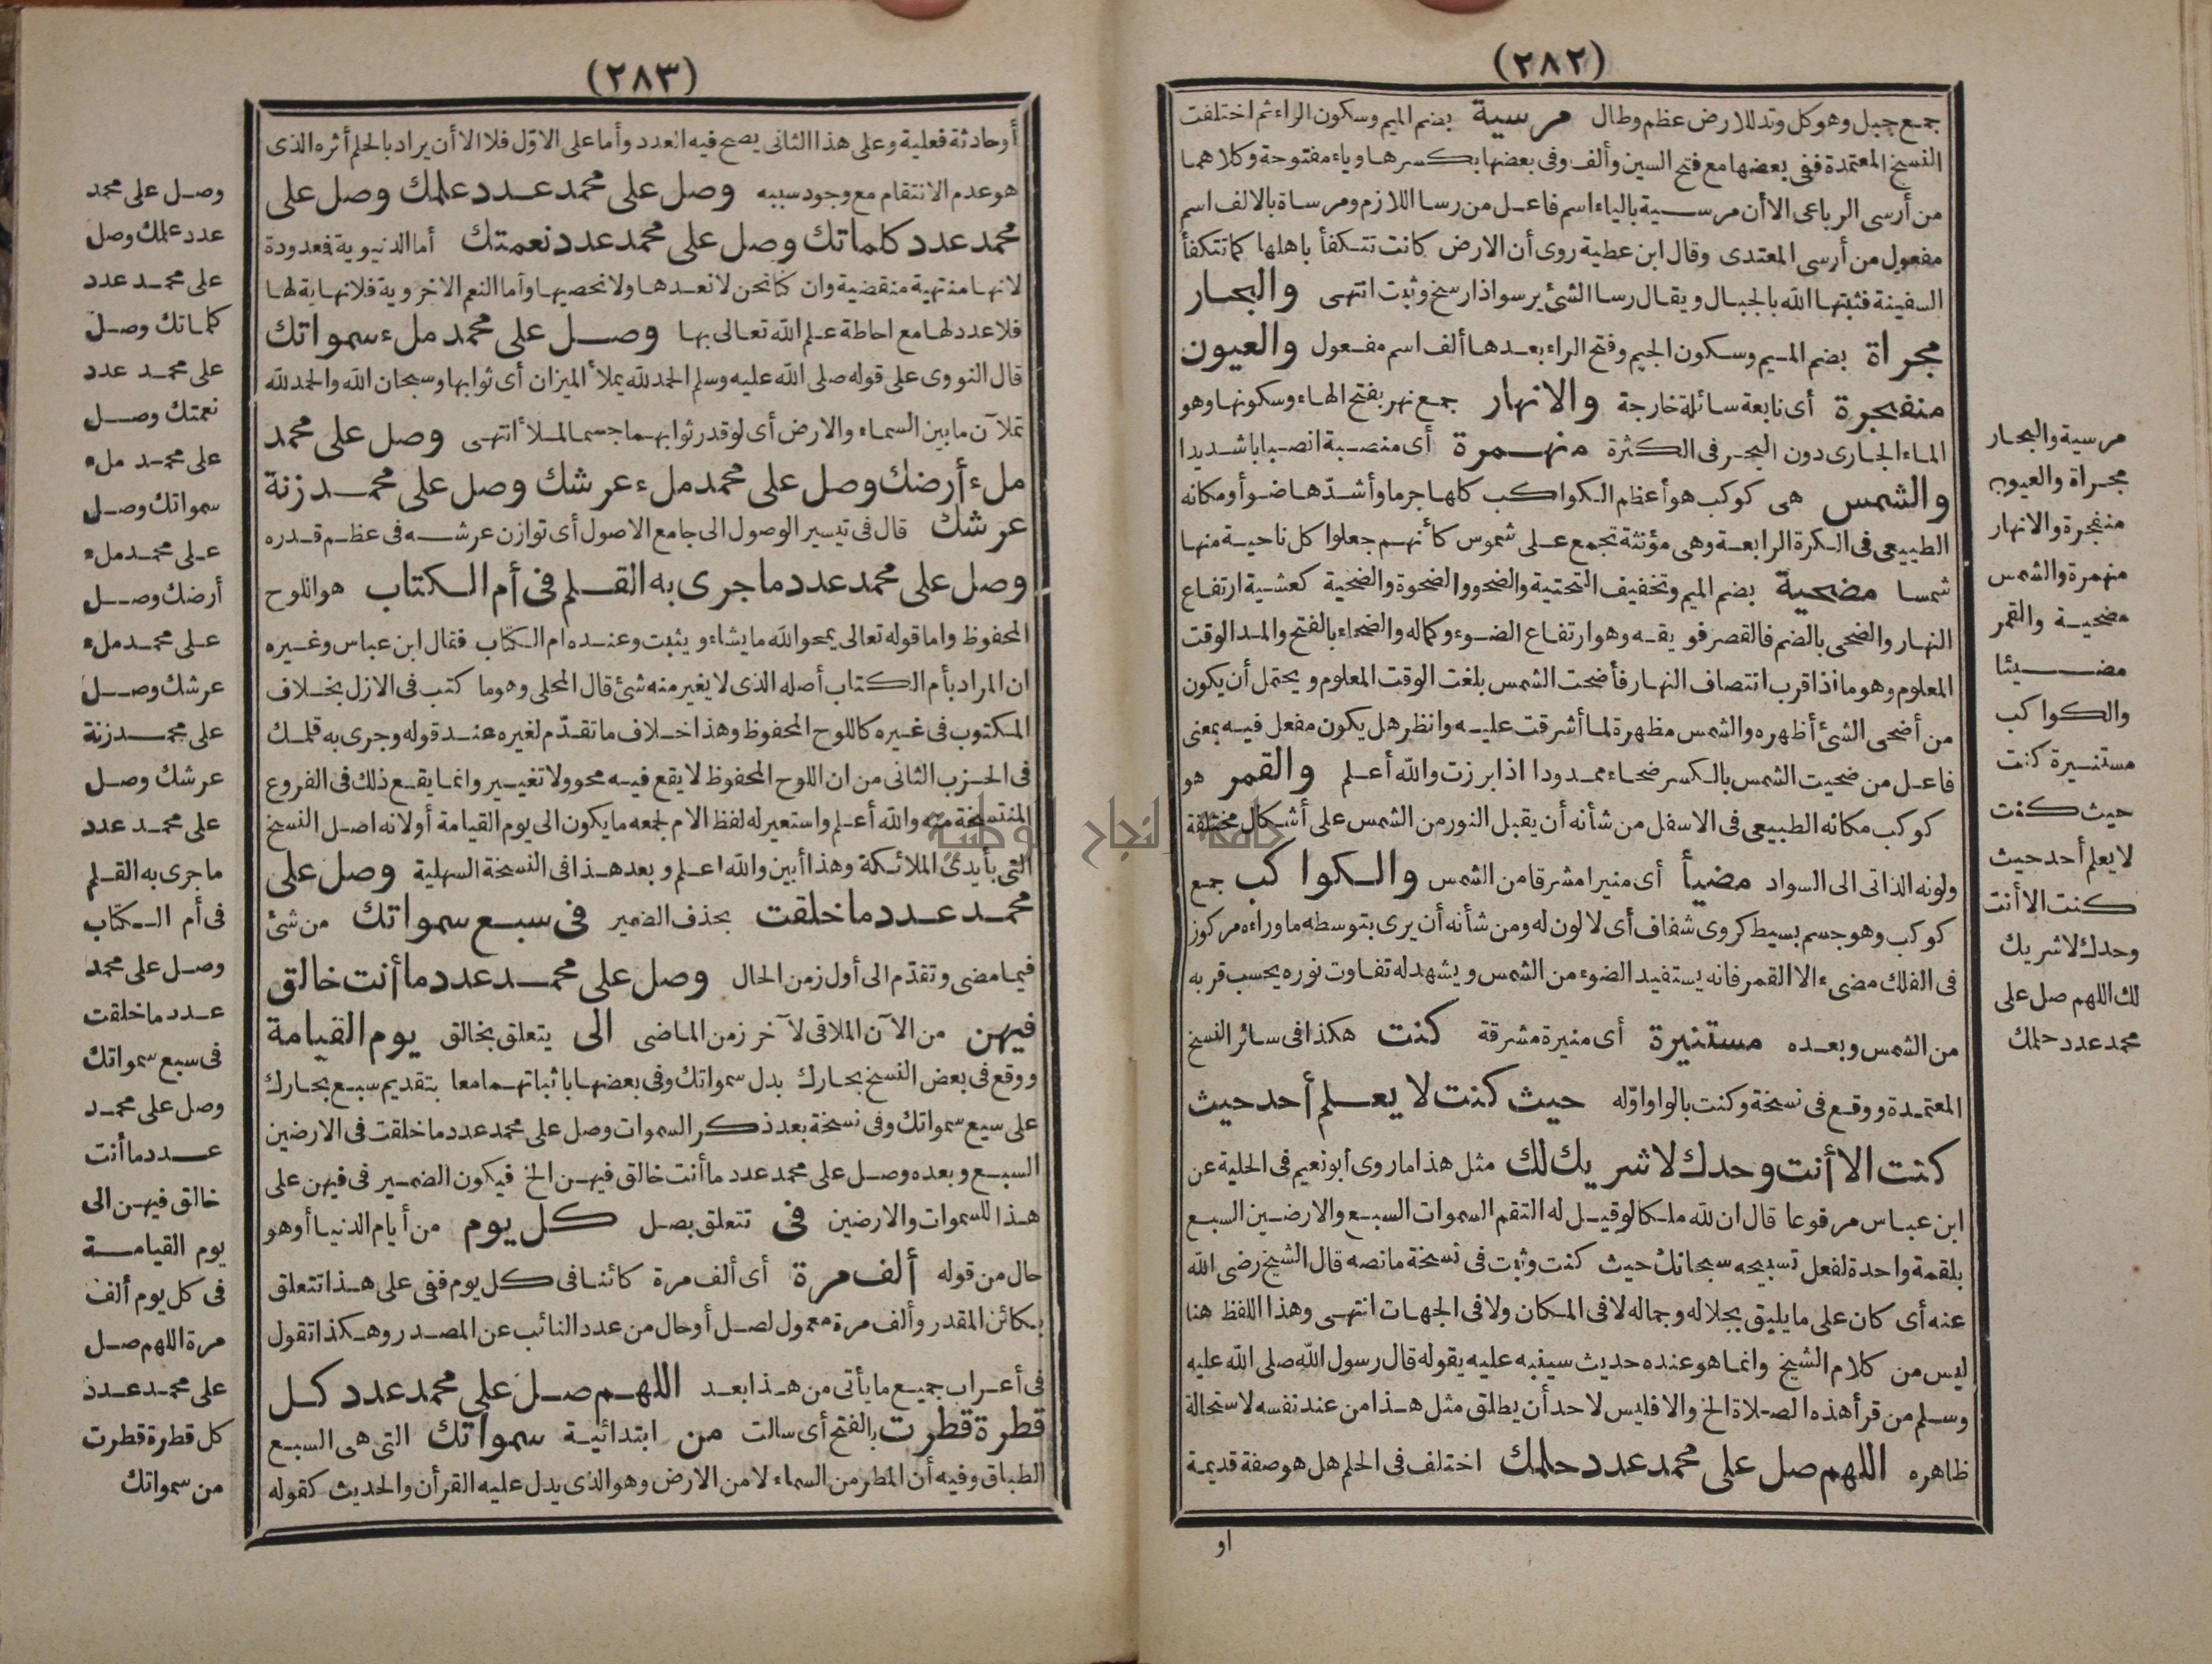 (٢٨٢)
جمع جبل وهو كل وتد للارض عظم وطال مرسية بضم الميم وسكون الراء ثم اختلفت
النسخ المعتمدة ففى بعضها مع فتح السين وألف وفى بعضها بكسرها وياء مفتوحة وكلاهما
من أرسى الرباعى الا أن مرسية بالياء اسم فاعل من رسا اللازم ومرساة بالالف اسم
مفعول من أرسى المعتدى وقال ابن عطية روى أن الارض كانت تتكفأ باهلها كما تتكفأ
السفينة فثبتها الله بالجبال ويقال رسا الشئ يرسو اذا رسخ وثبت انتهى والبحار
مجراة بضم الميم وسكون الجيم وفتح الراء بعدها ألف اسم مفعول والعيون
منفجرة أى نابعة سائلة خارجة والانهار جمع نهر بفتح الهاء وسكونها وهو
الماء الجارى دون البحر فى الكثرة منهمرة أى منصبة انصبابا شديدا
والشمس هى كوكب هو أعظم الكواكب كلها جرما وأشدّها ضوأ ومكانه
الطبيعى فى الكرة الرابعة وهى مؤنثة تجمع على شموس كأنهم جعلوا كل ناحية منها
شمسا مضحية بضم الميم وتخفيف التحتية والضحو والضحوة والضحية كعشية ارتفاع
النهار والضحى بالضم فالقصر فويقه وهو ارتفاع الضوء وكماله والضحاء بالفتح والمد الوقت
المعلوم وهو ما اذا قرب انتصاف النهار فأضحت الشمس بلغت الوقت المعلوم ويحتمل أن يكون
من أضحى الشئ أظهره والشمس مظهرة لما أشرقت عليه وانظر هل يكون مفعل فيه بمعنى
فاعل من ضحيت الشمس بالكسر ضحاء ممدودا اذا برزت والله أعلم والقمر هو
كوكب مكانه الطبيعى فى الاسفل من شأنه أن يقبل النور من الشمس على أشكال مختلفة
ولونه الذاتى الى السواد مضيأ أى منيرا مشرقا من الشمس والكواكب جمع
كوكب وهو جسم بسيط كروى شفاف أى لا لون له ومن شأنه أن يرى بتوسطه ما وراءه مركوز
فى الفلك مضىء الا القمر فانه يستفيد الضوء من الشمس ويشهد له تفاوت نوره بحسب قربه
من الشمس وبعده مستنيرة أى منيرة مشرقة كنت هكذا فى سائر النسخ
المعتمدة ووقع فى نسخة وكنت بالواو اوّله حيث كنت لا يعلم أحد حيث
كنت الا أنت وحدك لا شريك لك مثل هذا ما روى أبو نعيم فى الحلية عن
ابن عباس مرفوعا قال ان لله ملكا لو قيل له التقم السموات السبع والارضين السبع
بلقمة واحدة لفعل تسبيحه سبحانك حيث كنت وثبت فى نسخة ما نصه قال الشيخ رضى الله
عنه أى كان على ما يليق بجلاله وجماله لا فى المكان ولا فى الجهات انتهى وهذا اللفظ هنا
ليس من كلام الشيخ وانما هو عنده حديث سينبه عليه بقوله قال رسول الله صلى الله عليه
وسلم من قرأ هذه الصلاة الخ والا فليس لاحد أن يطلق مثل هذا من عند نفسه لاستحالة
ظاهره اللهم صل على محمد عدد حلمك اختلف فى الحلم هل هو صفة قديمة
او
مرسية والبحار
مجراة والعيون
منفجرة والانهار
منهمرة والشمس
مضحية والقمر
مضيئا
والكواكب
مستنيرة كنت
حيث كنت
لا يعلم أحد حيث
كنت الا أنت
وحدك لا شريك
لك اللهم صل على
محمد عدد حلمك
(٢٨٣)
أو حادثة فعلية وعلى هذا الثانى يصح فيه العدد وأما على الاوّل فلا الا أن يراد بالحلم أثره الذى
هو عدم الانتقام مع وجود سببه وصل على محمد عدد علمك وصل على
محمد عدد كلماتك وصل على محمد عدد نعمتك أما الدنيوية فمعدودة
لانها منتهية منقضية وان كنا نحن لا نعدها ولا نحصيها وأما النعم الاخروية فلا نهاية لها
فلا عدد لها مع احاطة علم الله تعالى بها وصل على محمد ملء سمواتك
قال النووى على قوله صلى الله عليه وسلم الحمد لله يملأ الميزان أى ثوابها وسبحان الله والحمد لله
تملآن ما بين السماء والارض أى لو قدر ثوابهما جسما لملأ انتهى وصل على محمد
ملء أرضك وصل على محمد ملء عرشك وصل على محمد زنة
عرشك قال فى تيسير الوصول الى جامع الاصول أى توازن عرشه فى عظم قدره
وصل على محمد عدد ما جرى به القلم فى أم الكتاب هو اللوح
المحفوظ واما قوله تعالى يمحو الله ما يشاء ويثبت وعنده ام الكتاب فقال ابن عباس وغيره
ان المراد بأم الكتاب أصله الذى لا يغير منه شئ قال المحلى وهو ما كتب فى الازل بخلاف
المكتوب فى غيره كاللوح المحفوظ وهذا خلاف ما تقدّم لغيره عند قوله وجرى به قلمك
فى الحزب الثانى من ان اللوح المحفوظ لا يقع فيه محو ولا تغيير وانما يقع ذلك فى الفروع
المنتسخة منه والله أعلم واستعير له لفظ الام لجمعه ما يكون الى يوم القيامة أو لانه اصل النسخ
التى بأيدى الملائكة وهذا أبين والله اعلم وبعد هذا فى النسخة السهلية وصل على
محمد عدد ما خلقت بحذف الضمير فى سبع سمواتك من شئ
فيما مضى وتقدّم الى أول زمن الحال وصل على محمد عدد ما أنت خالق
فيهن من الآن الملاقى لآخر زمن الماضى الى يتعلق بخالق يوم القيامة
ووقع فى بعض النسخ بحارك بدل سمواتك وفى بعضها باثباتهما معا بتقديم سبع بحارك
على سبع سمواتك وفى نسخة بعد ذكر السموات وصل على محمد عدد ما خلقت فى الارضين
السبع وبعده وصل على محمد عدد ما أنت خالق فيهن الخ فيكون الضمير فى فيهن على
هذا للسموات والارضين فى تتعلق بصل كل يوم من أيام الدنيا أو هو
حال من قوله ألف مرة أى ألف مرة كائنا فى كل يوم ففى على هذا تتعلق
بكائن المقدر وألف مرة معمول لصل أو حال من عدد النائب عن المصدر وهكذا تقول
فى أعراب جميع ما يأتى من هذا بعد اللهم صل على محمد عدد كل
قطرة قطرت بالفتح أى سالت من ابتدائية سمواتك التى هى السبع
الطباق وفيه أن المطر من السماء لا من الارض وهو الذى يدل عليه القرأن والحديث كقوله
وصل على محمد
عدد علمك وصل
على محمد عدد
كلماتك وصل
على محمد عدد
نعمتك وصل
على محمد ملء
سمواتك وصل
على محمد ملء
أرضك وصل
على محمد ملء
عرشك وصل
على محمد زنة
عرشك وصل
على محمد عدد
ما جرى به القلم
فى أم الكتاب
وصل على محمد
عدد ما خلقت
فى سبع سمواتك
وصل على محمد
عدد ما أنت
خالق فيهن الى
يوم القيامة
فى كل يوم ألف
مرة اللهم صل
على محمد عدد
كل قطرة قطرت
من سمواتك
جامعة النجاح الوطنية